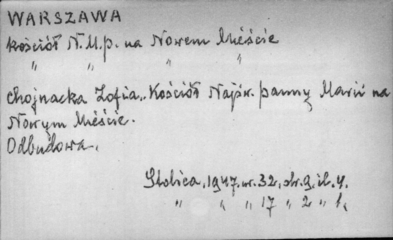 WARSZAWA
kościół N.M.p. na Nowem Mieście
" " " "
Chojnacka Zofia. Kościół Najśw. panny Marii na
Nowym Mieście.
Odbudowa.
Stolica, 1947. nr. 32, str. 9, il. 4.
" " " 17 " 2 " 1.